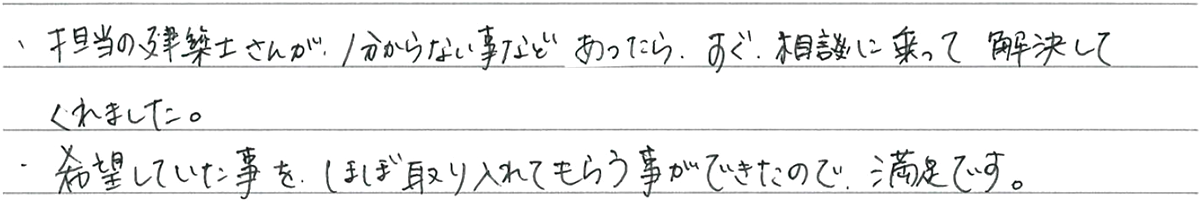 ・担当の建築士さんが、分からない事などあったら、すぐ、相談に乗って解決して
くれました。
・希望していた事を、ほぼ取り入れてもらう事ができたので、満足です。